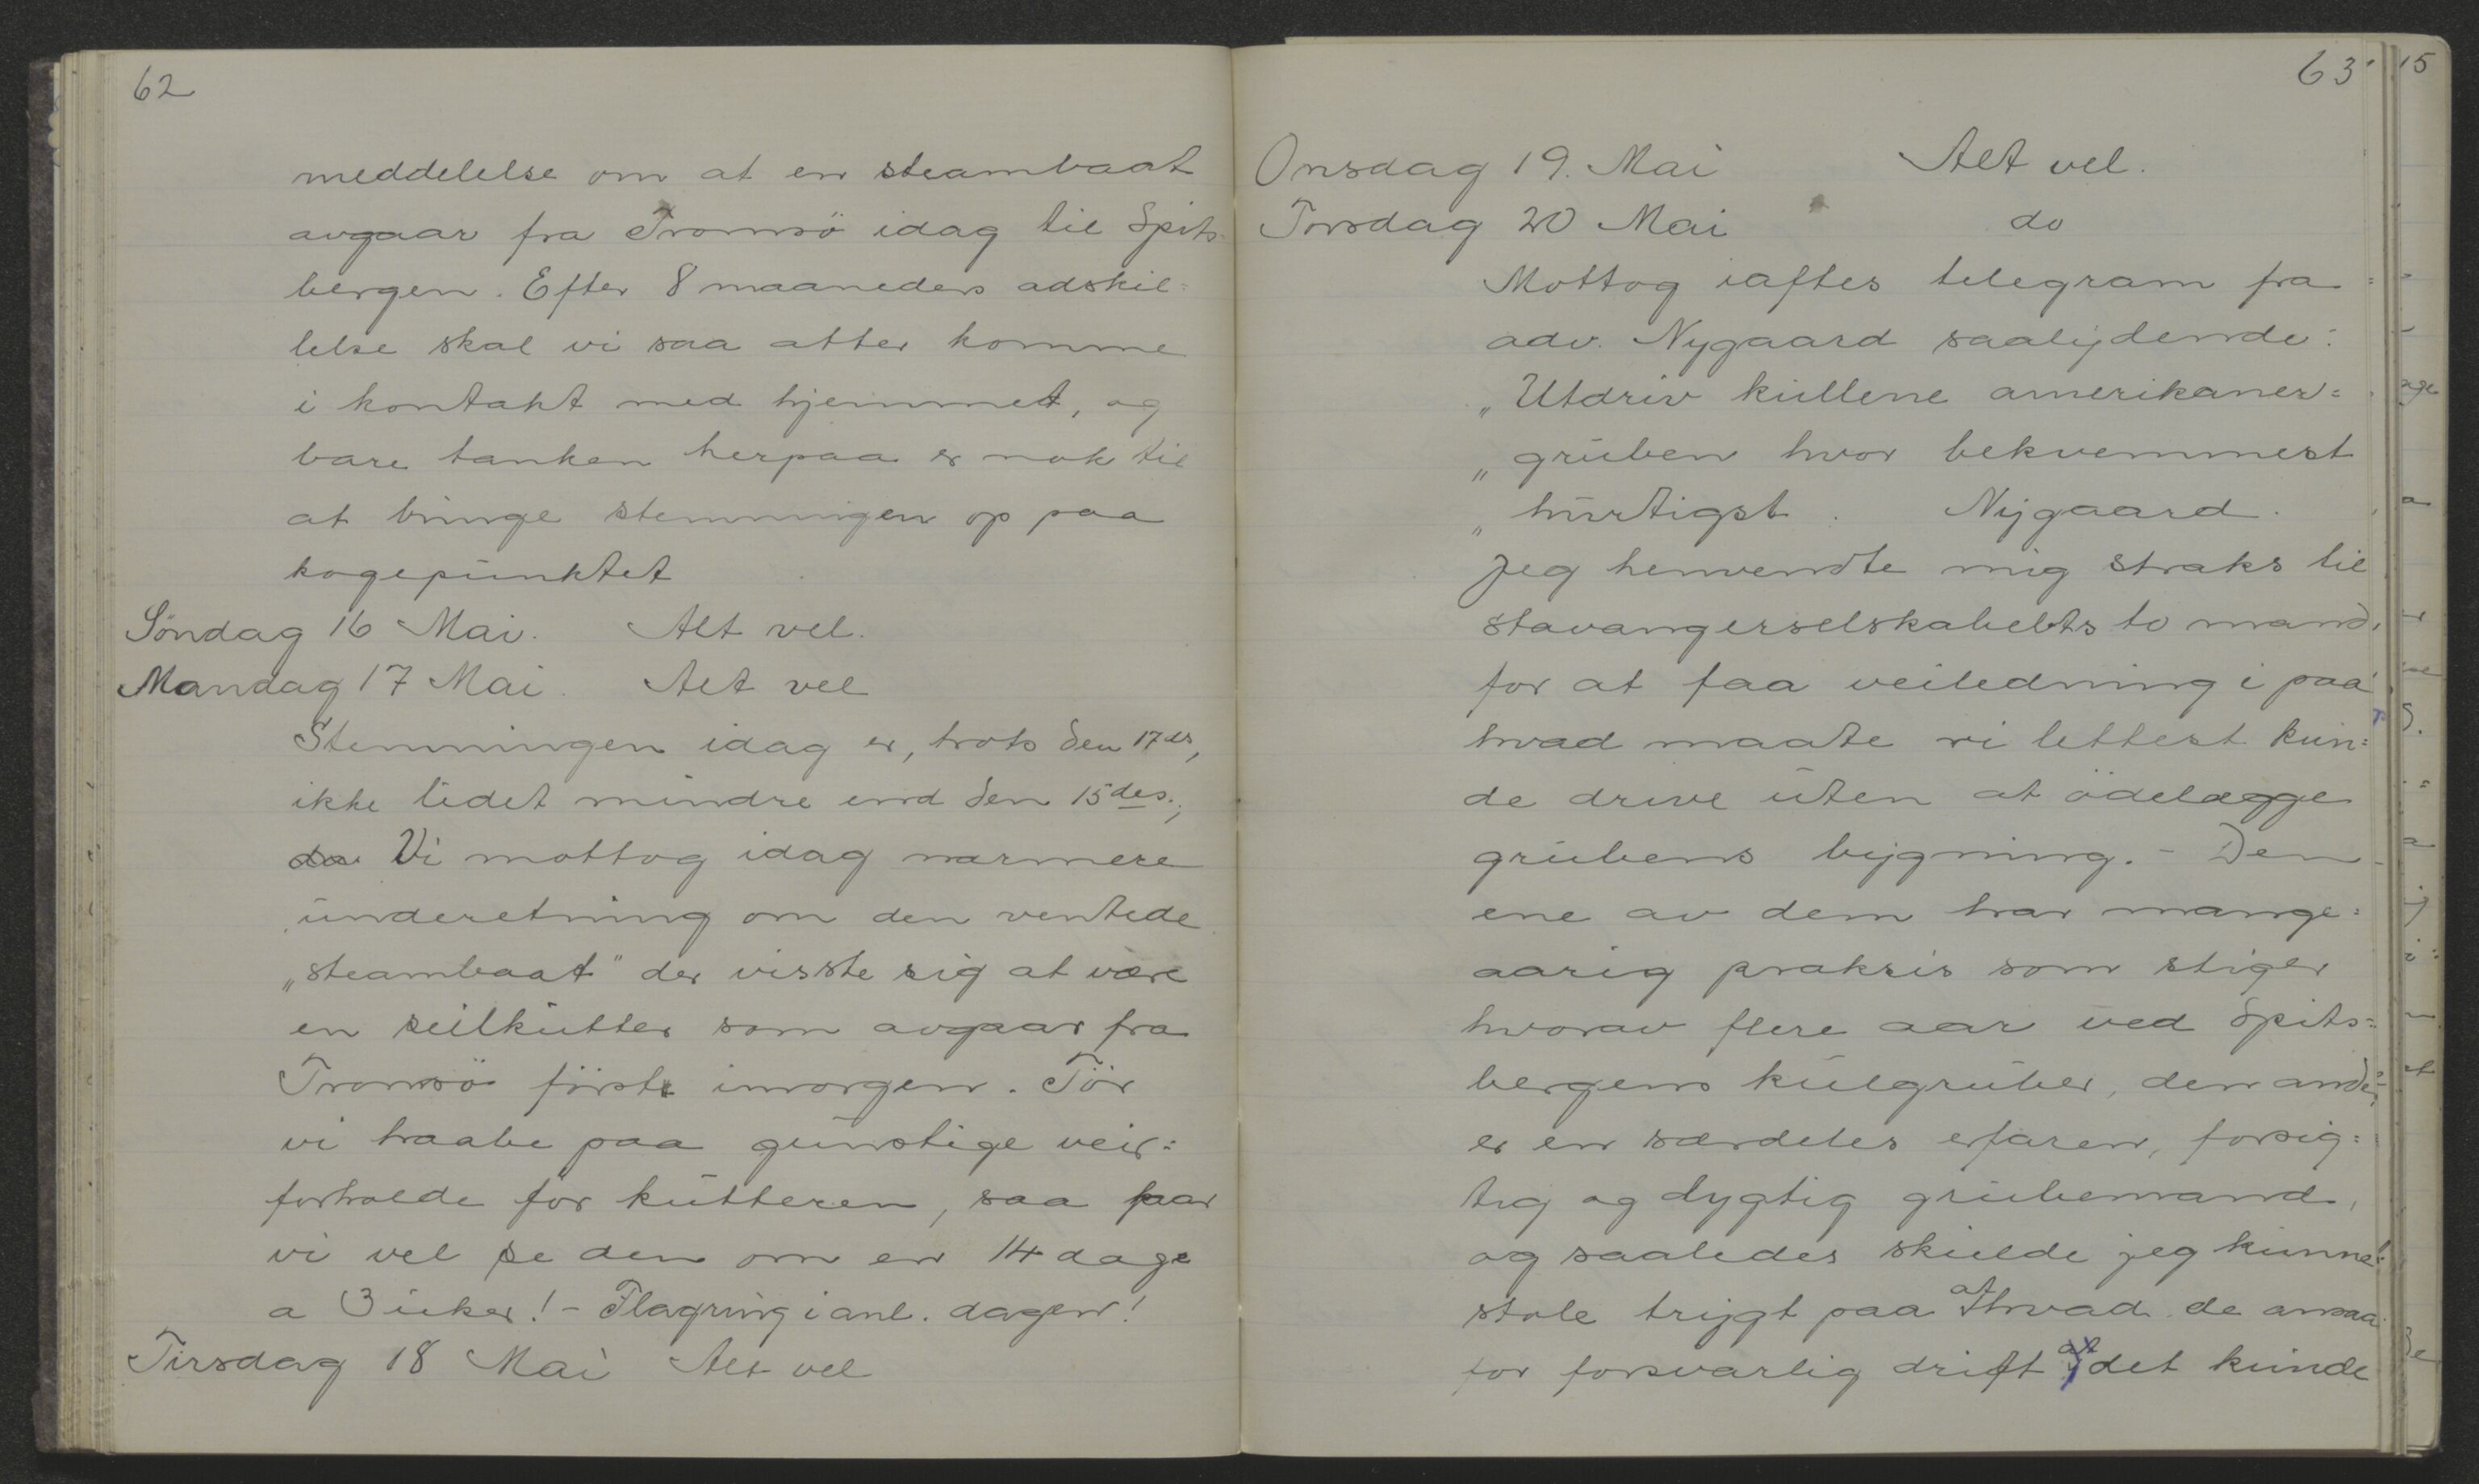 62
meddelelse om at en steambaat
avgaar fra Tromsö idag til Spits-
bergen. Efter 8 maaneders adskil=
lelse skal vi saa atter komme
i kontakt med hjemmet, og
bare tanken herpaa er nok til
at bringe stemningen op paa
kogepunktet
Söndag 16 Mai. Alt vel.
Mandag 17 Mai. Alt vel
Stemningen idag er, trots den 17des,
ikke lidet mindre end den 15des.,
da Vi mottog idag nærmere
underetning om den ventede
„steambaat" der visste sig at være
en seilkutter som avgaar fra
Tromsö först imorgen. Tör
vi haabe paa gunstige veir=
forholde for kutteren, saa faar
vi vel se den om en 14 dage
a 3 uker! - Flagring i anl. dagen!
Tirsdag 18 Mai Alt vel
63
Onsdag 19. Mai Alt vel.
Torsdag 20 Mai do
Mottog iaftes telegram fra
adv. Nygaard saalydende:
„Utdriv kullene amerikaner=
„gruben hvor bekvemmest
„hurtigst. Nygaard.
Jeg henvendte mig straks til
stavangerselskabets to mand,
for at faa veiledning i paa
hvad maate vi lettest kun=
de drive uten at ödelægge
grubens bygning. - Den
ene av dem har mange=
aarig praksis som stiger
hvorav flere aar ved Spits=
bergens kulgruber, den anden
er en særdeles erfaren, forsig=
tig og dygtig grubemand,
og saaledes skulde jeg kunne
stole trygt paa at hvad de ansaa
for forsvarlig drift det kunde
15